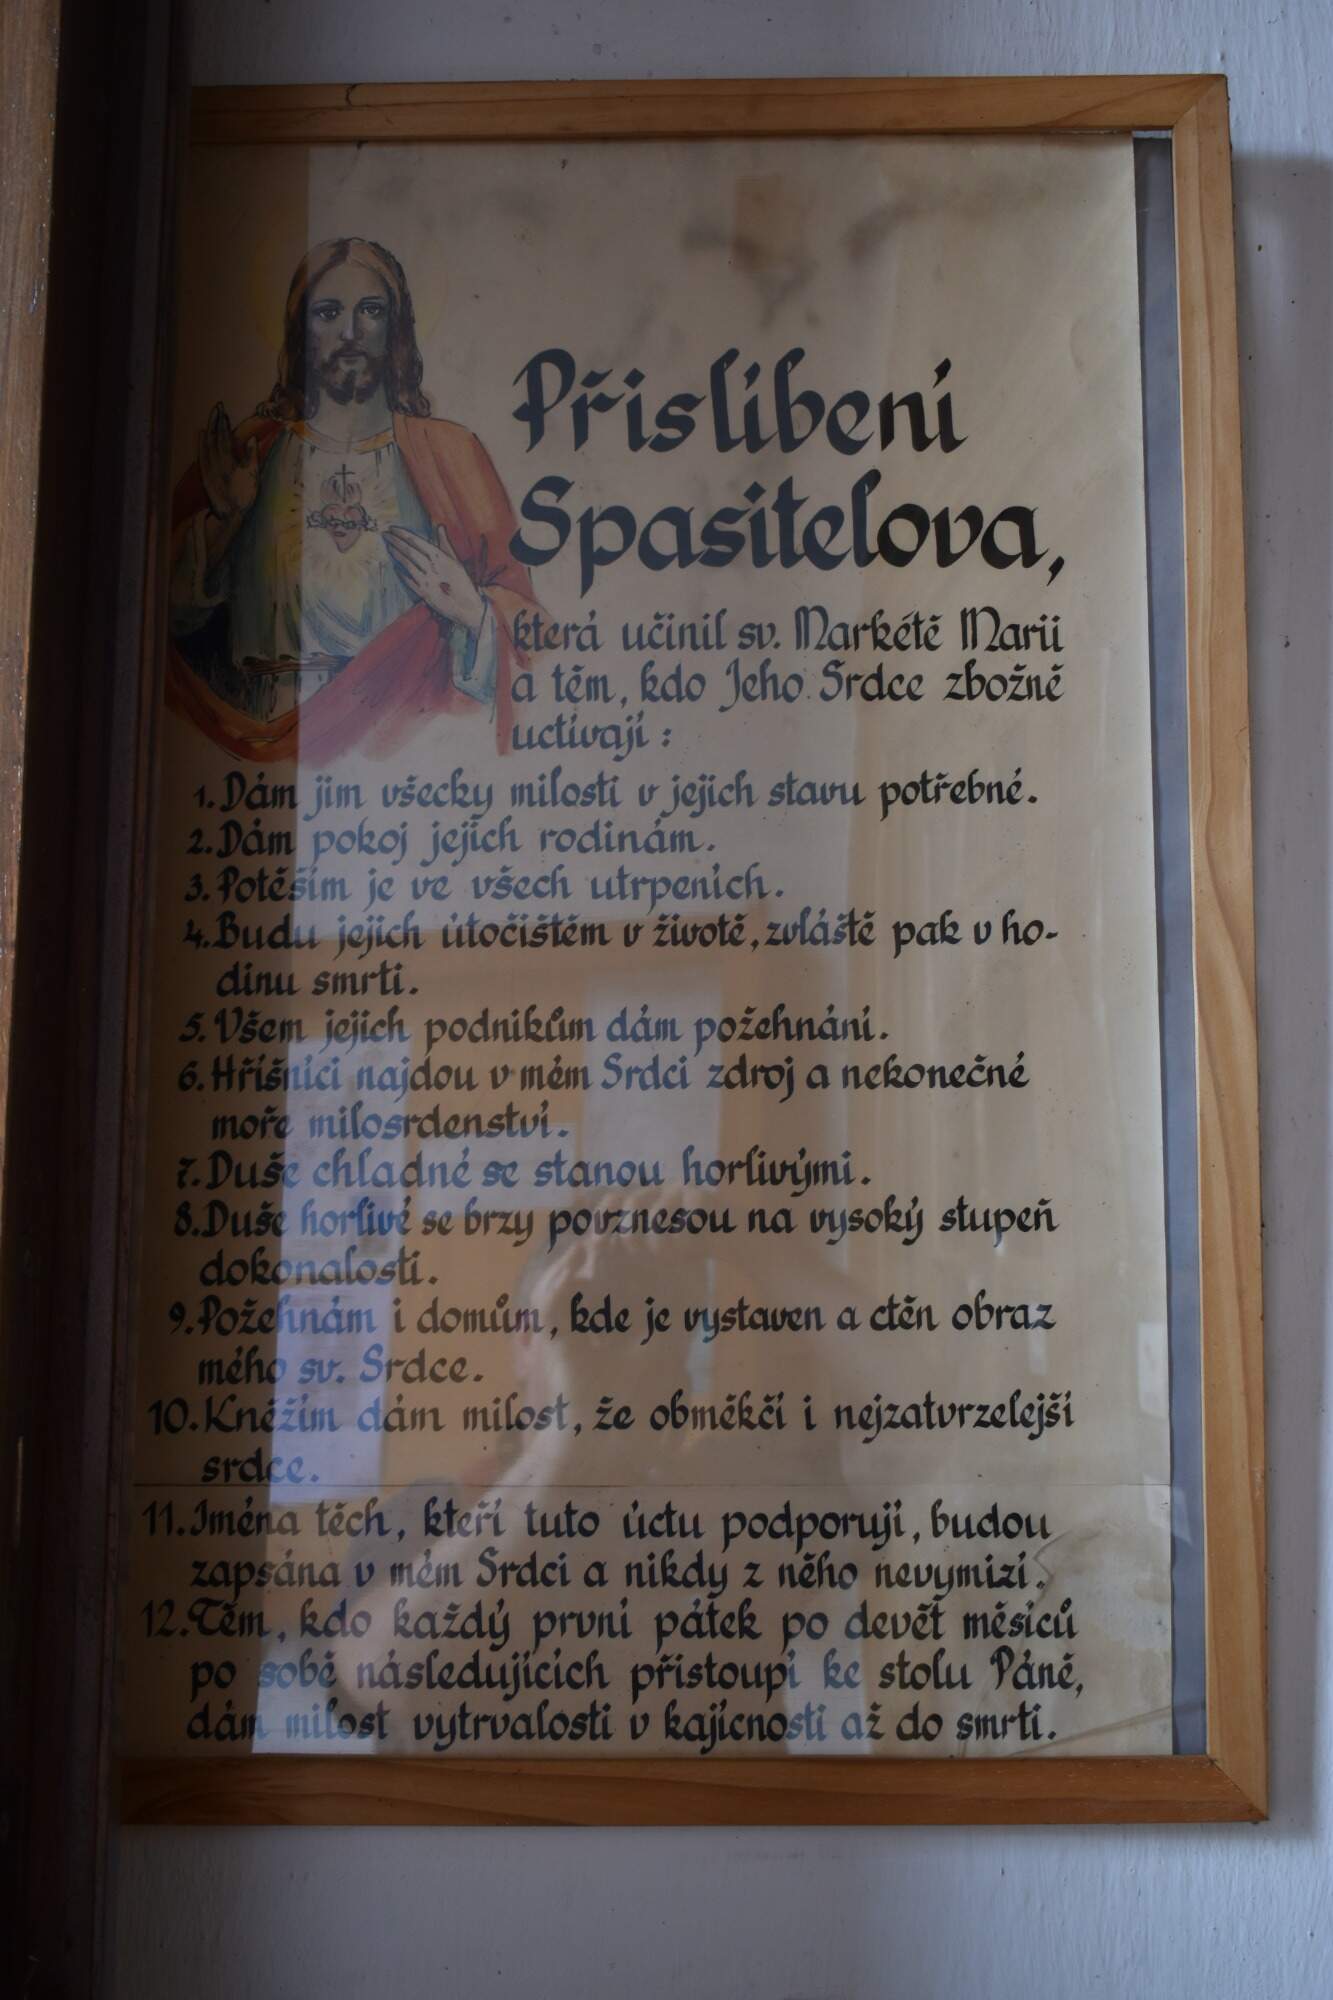 Přislíbení
Spasitelova,
která učinil sv. Markétě Marii
a těm, kdo Jeho Srdce zbožně
uctívají :
1. Dám jim všecky milosti v jejich stavu potřebné.
2. Dám pokoj jejich rodinám.
3. Potěším je ve všech utrpeních.
4. Budu jejich útočištěm v životě, zvláště pak v ho-
dinu smrti.
5. Všem jejich podnikům dám požehnání.
6. Hříšníci najdou v mém Srdci zdroj a nekonečné
moře milosrdenství.
7. Duše chladné se stanou horlivými.
8. Duše horlivé se brzy povznesou na vysoký stupeň
dokonalosti.
9. Požehnám i domům, kde je vystaven a ctěn obraz
mého sv. Srdce.
10. Kněžím dám milost, že obměkčí i nejzatvrzelejší
srdce.
11. Jména těch, kteří tuto úctu podporují, budou
zapsána v mém Srdci a nikdy z něho nevymizí.
12. Těm, kdo každý první pátek po devět měsíců
po sobě následujících přistoupí ke stolu Páně,
dám milost vytrvalosti v kajícnosti až do smrti.